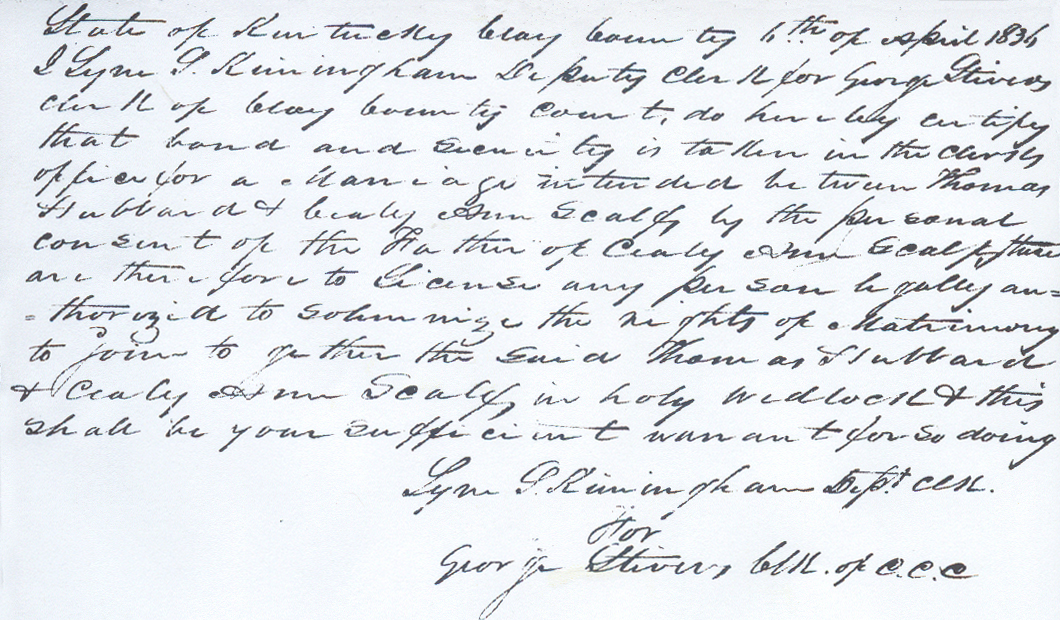 State of Kentucky Clay County 6th of April 1836
I Lynn P. Kiningham Deputy Clerk for George Stivers
Clerk of Clay County Court, do hereby certify
that bond and security is taken in the clerks
office for a Marriage intended between Thomas
Hubbard & Cealy Ann Scalf, by the personal
consent of the Father of Cealy Ann Scalf, these
are therefore to License any person legally au=
=thorized to solemnize the rights of Matrimony
to join to gether the said Thomas Hubbard
& Cealy Ann Scalf, in holy Wedlock & this
shall be your sufficient warrant for so doing
Lynn P. Kiningham Dept Clk.
For
George Stivers Clk. of C.C.C